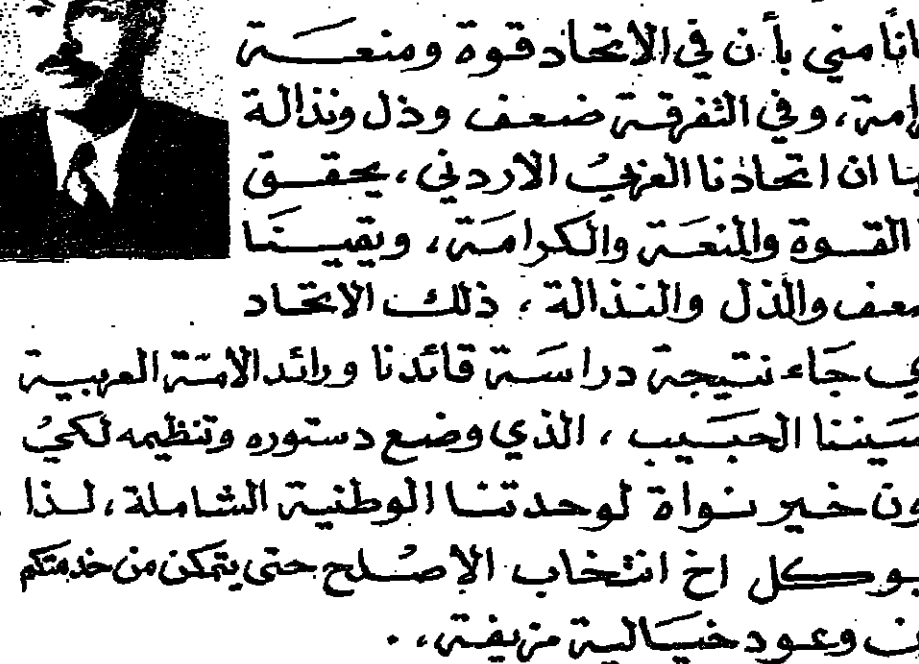 مني بأن في الاتحاد قوة ومنعة
وفي التفرقة ضعف وذل ونذالة
ان اتحادنا العربي الاردني، يحقق
القوة والمنعة والكرامة، ويقينا
والذل والنذالة، ذلك الاتحاد
جاء نتيجة دراسة قائدنا ورائد الامة العربية
الحبيب، الذي وضع دستوره وتنظيمه لكي
خير نواة لوحدتنا الوطنية الشاملة، لذا
كل اخ انتخاب الاصلح حتى يتمكن من خدمتكم
وعود خيالية مزيفة،.